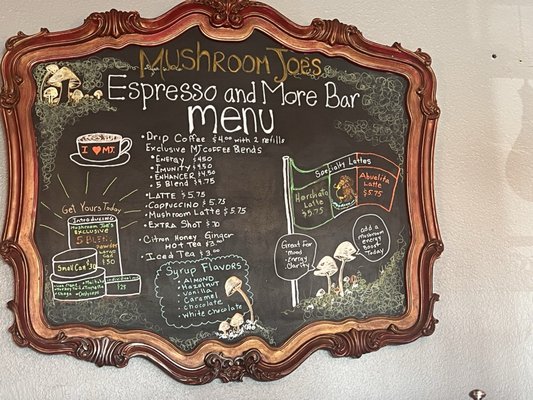 Mushroom Joe's
Espresso and More Bar
menu
I ♥ MJ.
Get Yours Today
Introducing
Mushroom Joe's
Exclusive
5 Blend
Small Can
• Drip Coffee $4.00 with 2 refills
Exclusive MJ Coffee Blends
• Energy $4.50
• Imunity $4.50
• Enhancer $4.50
• 5 Blend $4.75
• Latte $5.75
• Cappuccino $5.75
• Mushroom Latte $5.75
• Extra Shot
• Citron Honey Ginger
Hot Tea
• Iced Tea
Syrup Flavors
• Almond
• Hazelnut
• Vanilla
• Caramel
• Chocolate
• White Chocolate
Specialty Lattes
Horchata
Latte
$5.75
Abuelita
Latte
$5.75
Great for
mood
Energy
Clarity
add a
mushroom
energy
Boost
today